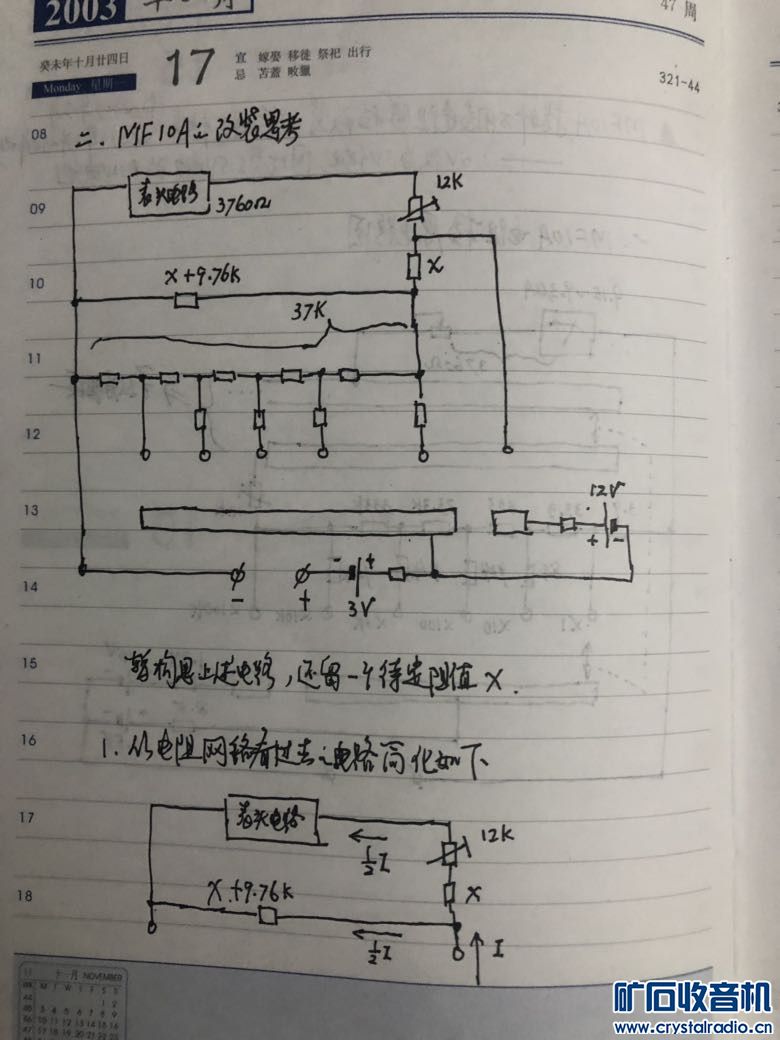 2003
47周
癸未年十月廿四日
Monday 星期一
17
宜 嫁娶 移徙 祭祀 出行
忌 苫蓋 畋獵
321-44
08
二. MF10A之改装思考
09
表头电路
3760Ω
12K
x
10
x+9.76K
37K
11
12
13
12V
+ -
14
-
+
- +
3V
15
暂构思上述电路，还留一个待定阻值 x.
16
1. 从电阻网络看过去之电路简化如下
17
表头电路
½I
12K
x
18
x+9.76K
½I
I
十一月 NOVEMBER
矿石收音机
www.crystalradio.cn